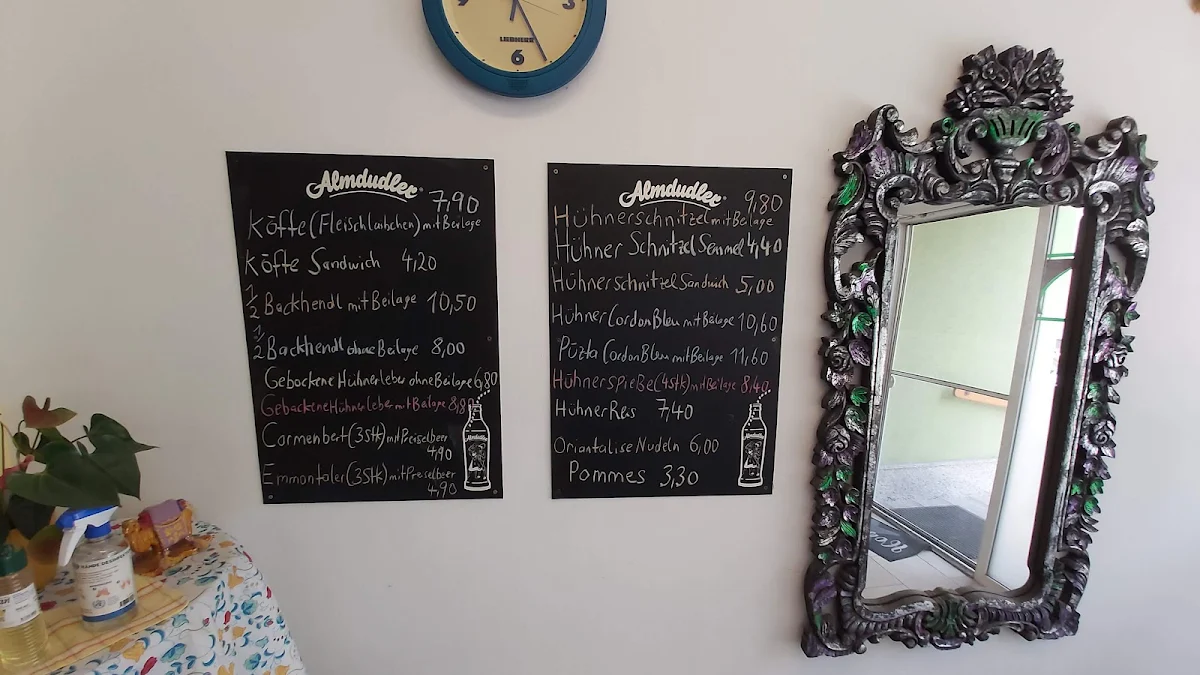 3
3
LIEBHERR
6
Almdudler
7,90
Köfte (Fleischlaibchen) mit Beilage
Köfte Sandwich 4,20
1/2 Backhendl mit Beilage 10,50
1/2 Backhendl ohne Beilage 8,00
Gebackene Hühnerleber ohne Beilage 6,80
Gebackene Hühnerleber mit Beilage 8,80
Camenbert (3Stk) mit Preiselbeer
4,90
Emmontaler (3Stk) mit Preiselbeer
4,90
Almdudler
Almdudler
9,80
Hühnerschnitzel mit Beilage
Hühner Schnitzel Semmel 4,40
Hühnerschnitzel Sandwich 5,00
Hühner Cordon Bleu mit Beilage 10,60
Puzta Cordon Bleu mit Beilage 11,60
Hühnerspieße (4Stk) mit Beilage 8,40
Hühner Reis 7,40
Oriantalise Nudeln 6,00
Pommes 3,30
Almdudler
HÄNDE DESINF